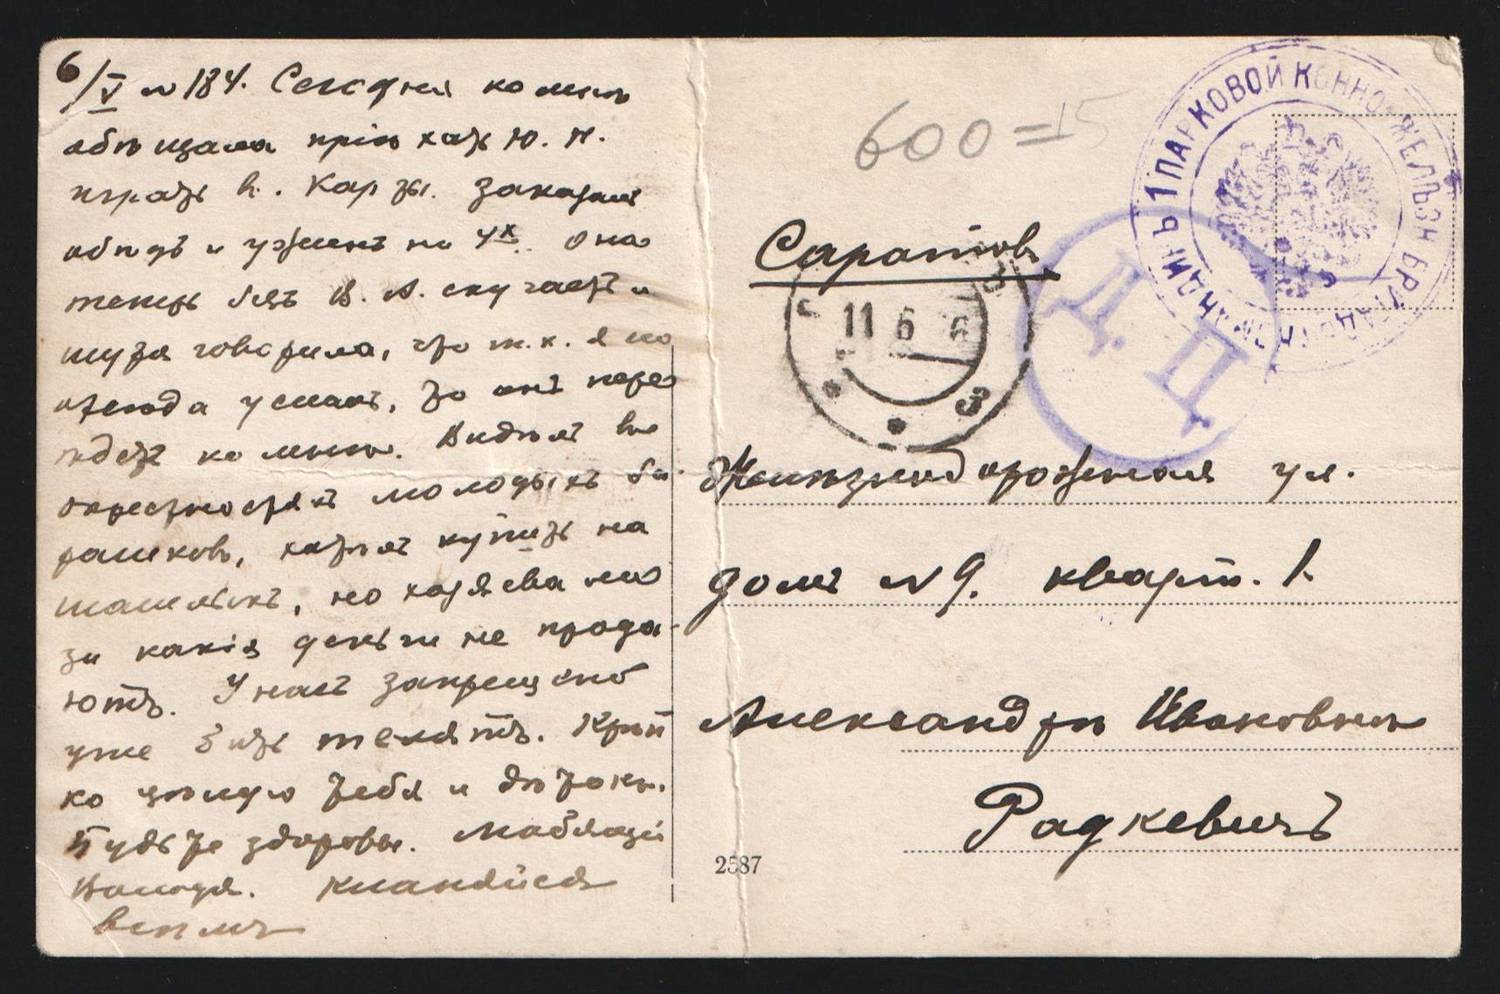 6/V N 184. Сегодня ко мнѣ
обѣщала пріѣхать Ю. Н.
играть въ Карты. Заказалъ
обѣдъ и ужинъ на 4х. Она
теперь безъ В. А. скучаетъ и
шутя говорила, что т. к. я на
отсюда уѣхалъ, то онъ пере
ждетъ ко мнѣ. Видѣлъ въ
окрестностяхъ молодыхъ ба
рашковъ, хотѣлъ купить на
шашлыкъ, но хозяева ни
за какія деньги не прода-
ютъ. У насъ запрещено
уже бить телятъ. Крѣп
ко цѣлую тебя и дѣтокъ.
Будьте здоровы. Любящій
Володя. Кланяйся
всѣмъ
600 = 15
1 ПАРКОВОЙ КОННО-ЖЕЛѢЗН БРИГАДЫ
Д. П.
Саратовъ
11 6
3
Желѣзнодорожная ул.
домъ N 9. кварт. 1.
Александрѣ Ивановнѣ
Радкевичъ
2587